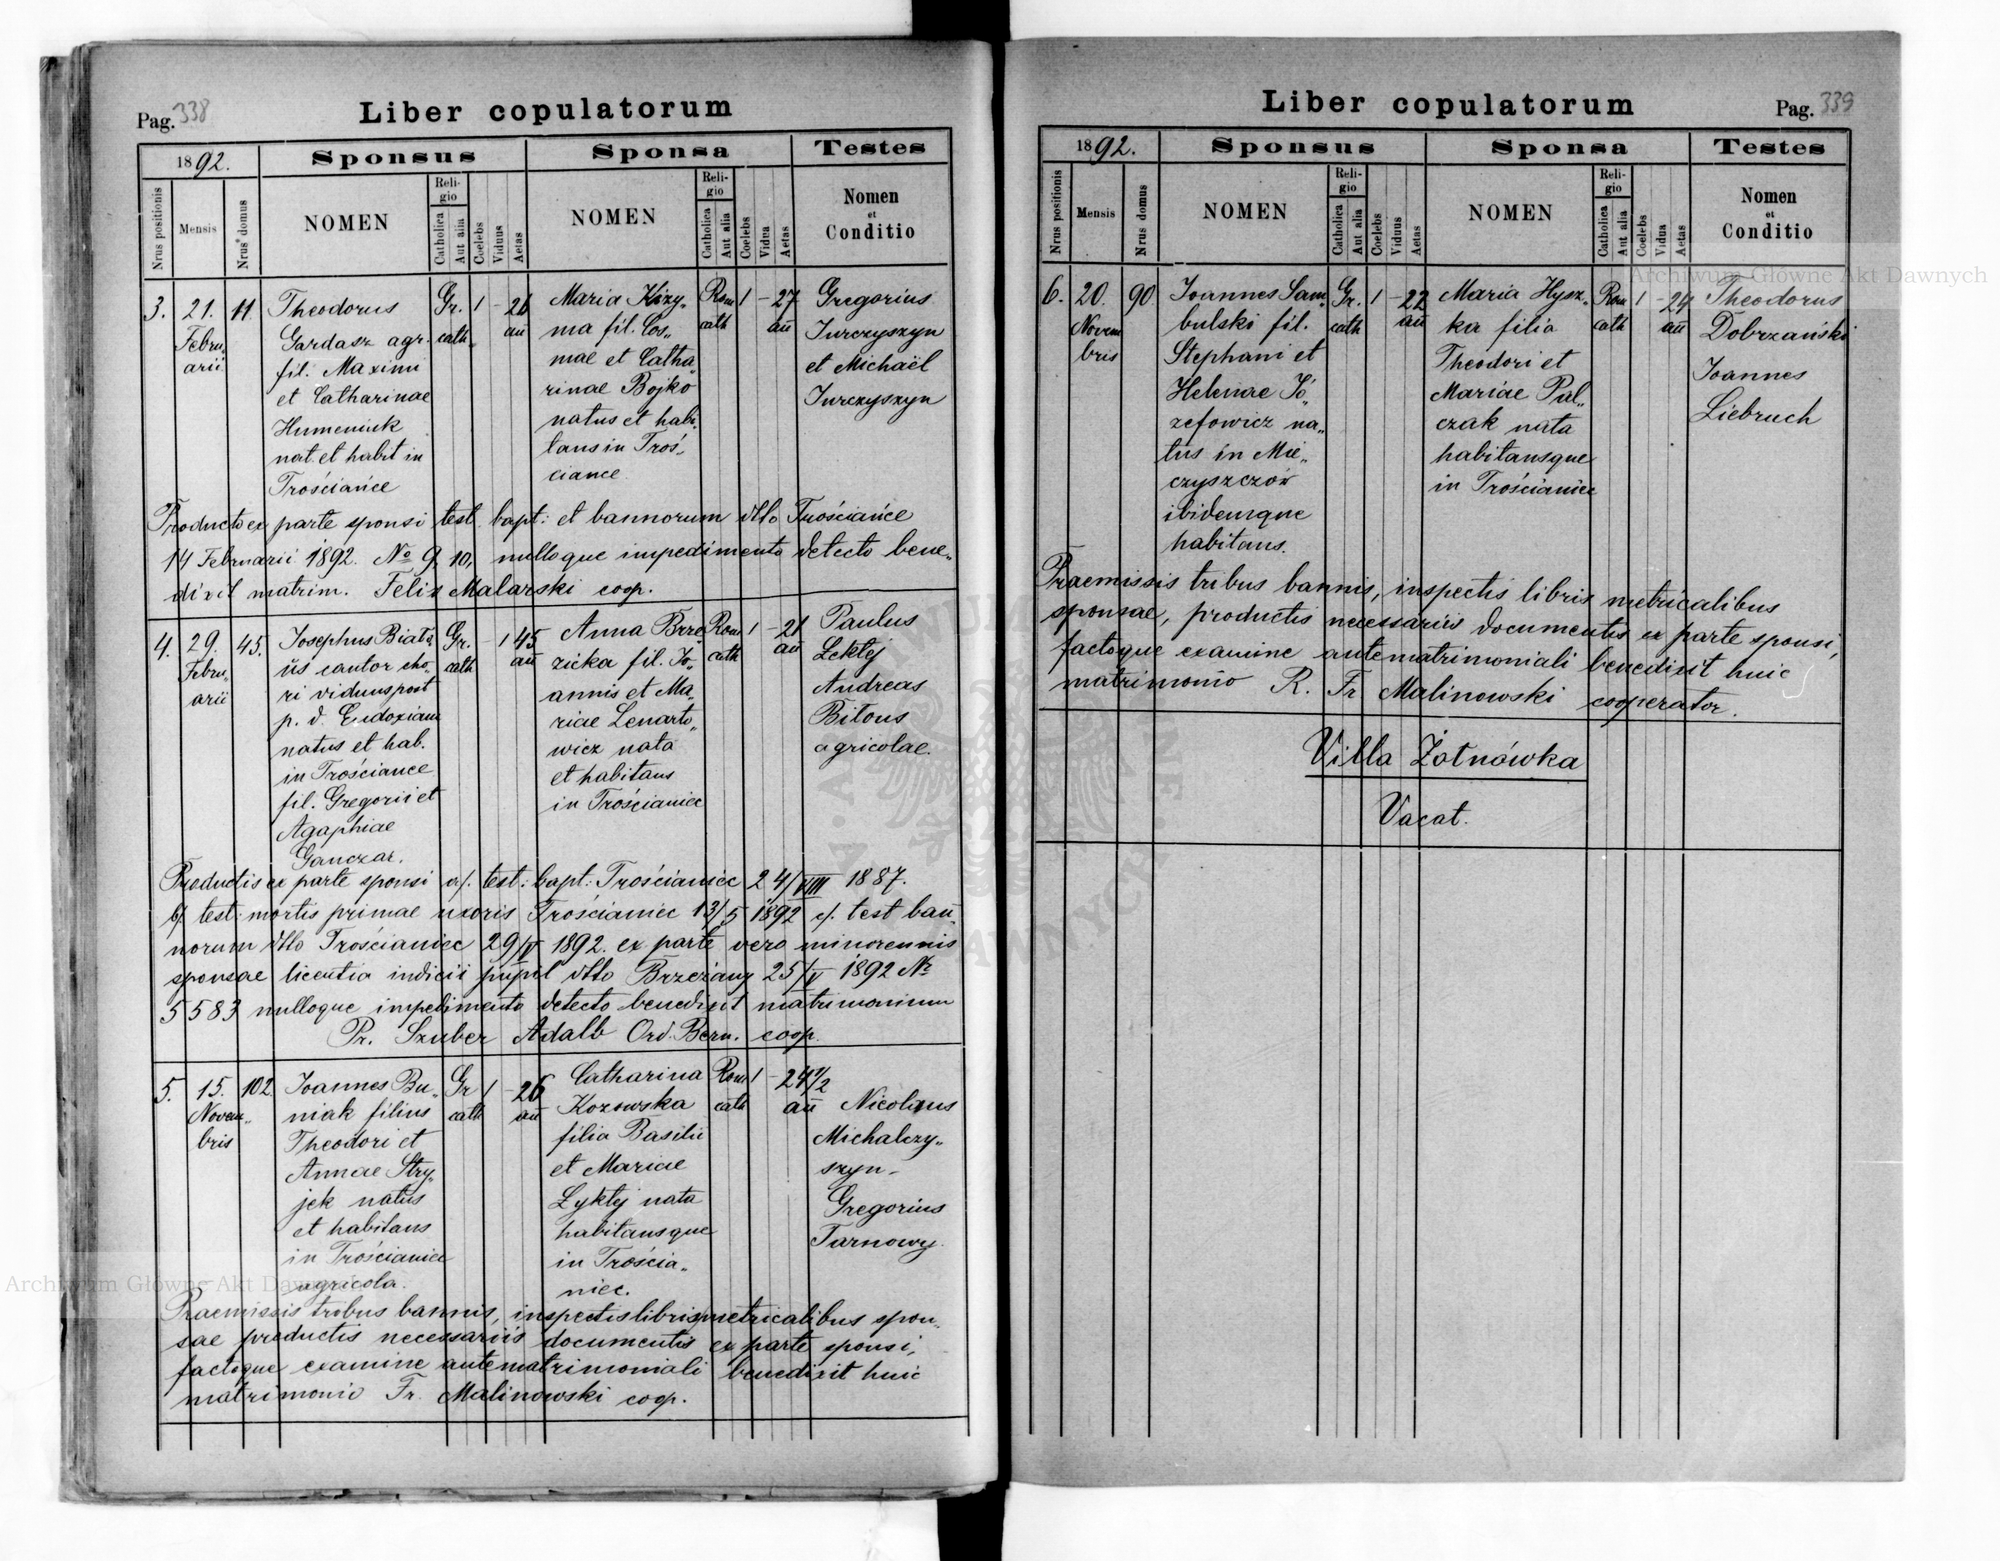 Pag. 338
Liber copulatorum
1892.
Sponsus
Sponsa
Testes
Nrus positionis
Mensis
Nrus domus
NOMEN
Religio
Catholica
Aut alia
Coelebs
Viduus
Aetas
NOMEN
Religio
Catholica
Aut alia
Coelebs
Vidua
Aetas
Nomen
et
Conditio
3. 21. Februarii 11.
Theodorus
Gardasz agr.
fil. Maximi
et Catharinae
Humeniuk
nat. et habit in
Trościańce
Gr. cath. 1 - 26 an̄
Maria Kizy„
ma fil. Cos„
mae et Catha„
rinae Bojko
natus et habi„
tans in Troś„
ciance
Rom cath 1 - 27 an̄
Gregorius
Jurczyszyn
et Michaël
Jurczyszyn
Producto ex parte sponsi test. bapt: et bannorum dtto Trościańce
14 Februarii 1892. No 9, 10, nulloque impedimento detecto bene„
dixit matrim. Felix Malarski coop.
4. 29. Februarii 45.
Josephus Biały„
ńs cantor cho„
ri viduus post
p. d. Eudoxiam
natus et hab.
in Trościance
fil. Gregorii et
Agaphiae
Ganczar.
Gr. cath - 1 45 an̄
Anna Brze
zicka fil. Jo„
annis et Ma„
riae Lenarto„
wicz nata
et habitans
in Trościaniec
Rom cath 1 - 21 an̄
Paulus
Lektej
Andreas
Bitous
agricolae.
Productis ex parte sponsi a/. test: bapt: Trościaniec 24/VIII 1887.
b/ test: mortis primae uxoris Trościaniec 13/5 1892 c/. test ban„
norum dtto Trościaniec 29/V 1892. ex parte vero minorennis
sponsae licentia indicii pupil dtto Brzeżany 25/V 1892 No
5583 nulloque impedimento detecto benedixit matrimonium
Pr. Szuber Adalb Ord. Bern. coop.
5. 15. Novembris 102
Joannes Bu„
niak filius
Theodori et
Annae Stry„
jek natus
et habitans
in Trościaniec
agricola.
Gr cath 1 - 26 an̄
Catharina
Kozowska
filia Basilii
et Mariae
Łyktej nata
habitansque
in Trościa„
niec.
Rom cath 1 - 24 1/2 an̄
Nicolaus
Michalczy„
szyn -
Gregorius
Tarnowy.
Praemissis tribus bannis, inspectis libris metricalibus spon„
sae productis necessariis documentis ex parte sponsi,
factoque examine antematrimoniali benedixit huic
matrimonio Fr. Malinowski coop.
Liber copulatorum
Pag. 339
1892.
Sponsus
Sponsa
Testes
Nrus positionis
Mensis
Nrus domus
NOMEN
Religio
Catholica
Aut alia
Coelebs
Viduus
Aetas
NOMEN
Religio
Catholica
Aut alia
Coelebs
Vidua
Aetas
Nomen
et
Conditio
6. 20. Novembris 90
Joannes Sam„
bulski fil.
Stephani et
Helenae Jó„
zefowicz na„
tus in Mie„
czyszczów
ibidemque
habitans.
Gr. cath 1 - 22 an̄
Maria Hysz„
ka filia
Theodori et
Mariae Pal„
czak nata
habitansque
in Trościaniec
Rom cath 1 - 24 an̄
Theodorus
Dobrzański
Joannes
Liebruch
Praemissis tribus bannis, inspectis libris metricalibus
sponsae, productis necessariis documentis ex parte sponsi,
factoque examine antematrimoniali benedixit huic
matrimonio R. Fr Malinowski cooperator.
Villa Żołnówka
Vacat.
Archiwum Główne Akt Dawnych
Archiwum Główne Akt Dawnych